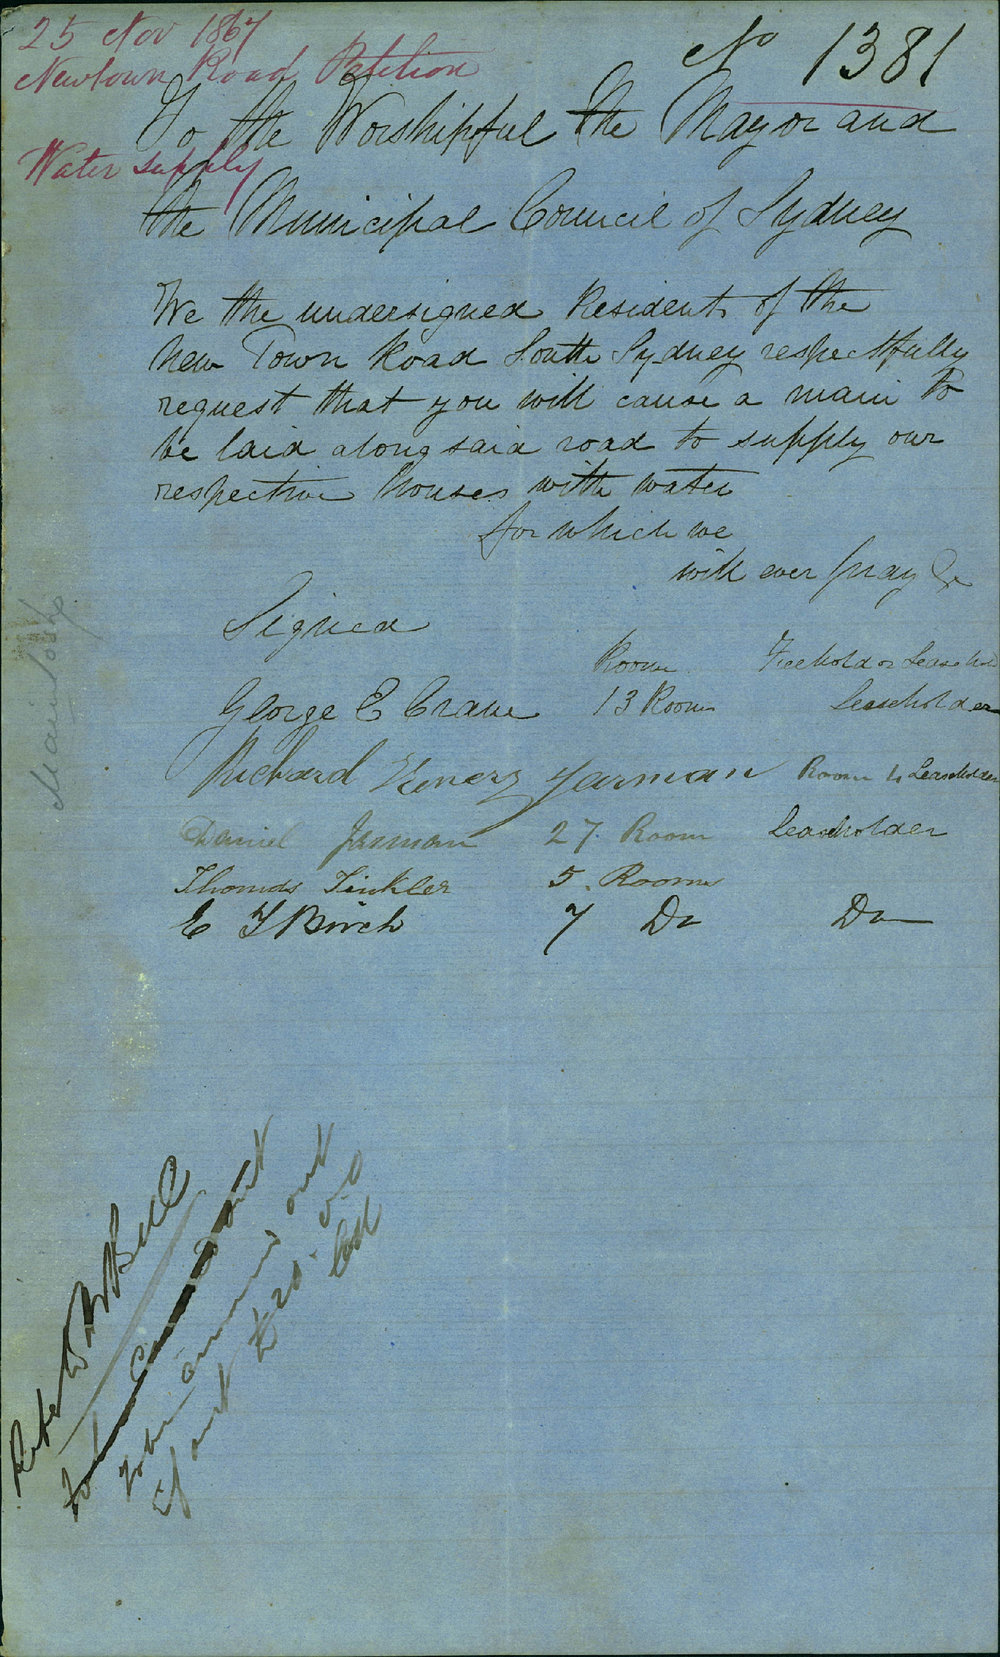 25 Nov 1867
Newtown Road Petition
No 1381
Water supply
To the Worshipful the Mayor and
the Municipal Council of Sydney
We the undersigned Residents of the
New Town Road South Sydney respectfully
request that you will cause a main to
be laid along said road to supply our
respective houses with water
for which we
will ever pray &c
Signed
Rooms Freehold or Leasehold
George E Crane 13 Rooms Leaseholder
Richard Henery Jarman Room 4 Leaseholder
Daniel Jarman 27. Room Leaseholder
Thomas Tinkler 5. Rooms
E T Birch 7 Do Do
Robert W Bell
To be carried out
To be carried out
if not £20.0.0